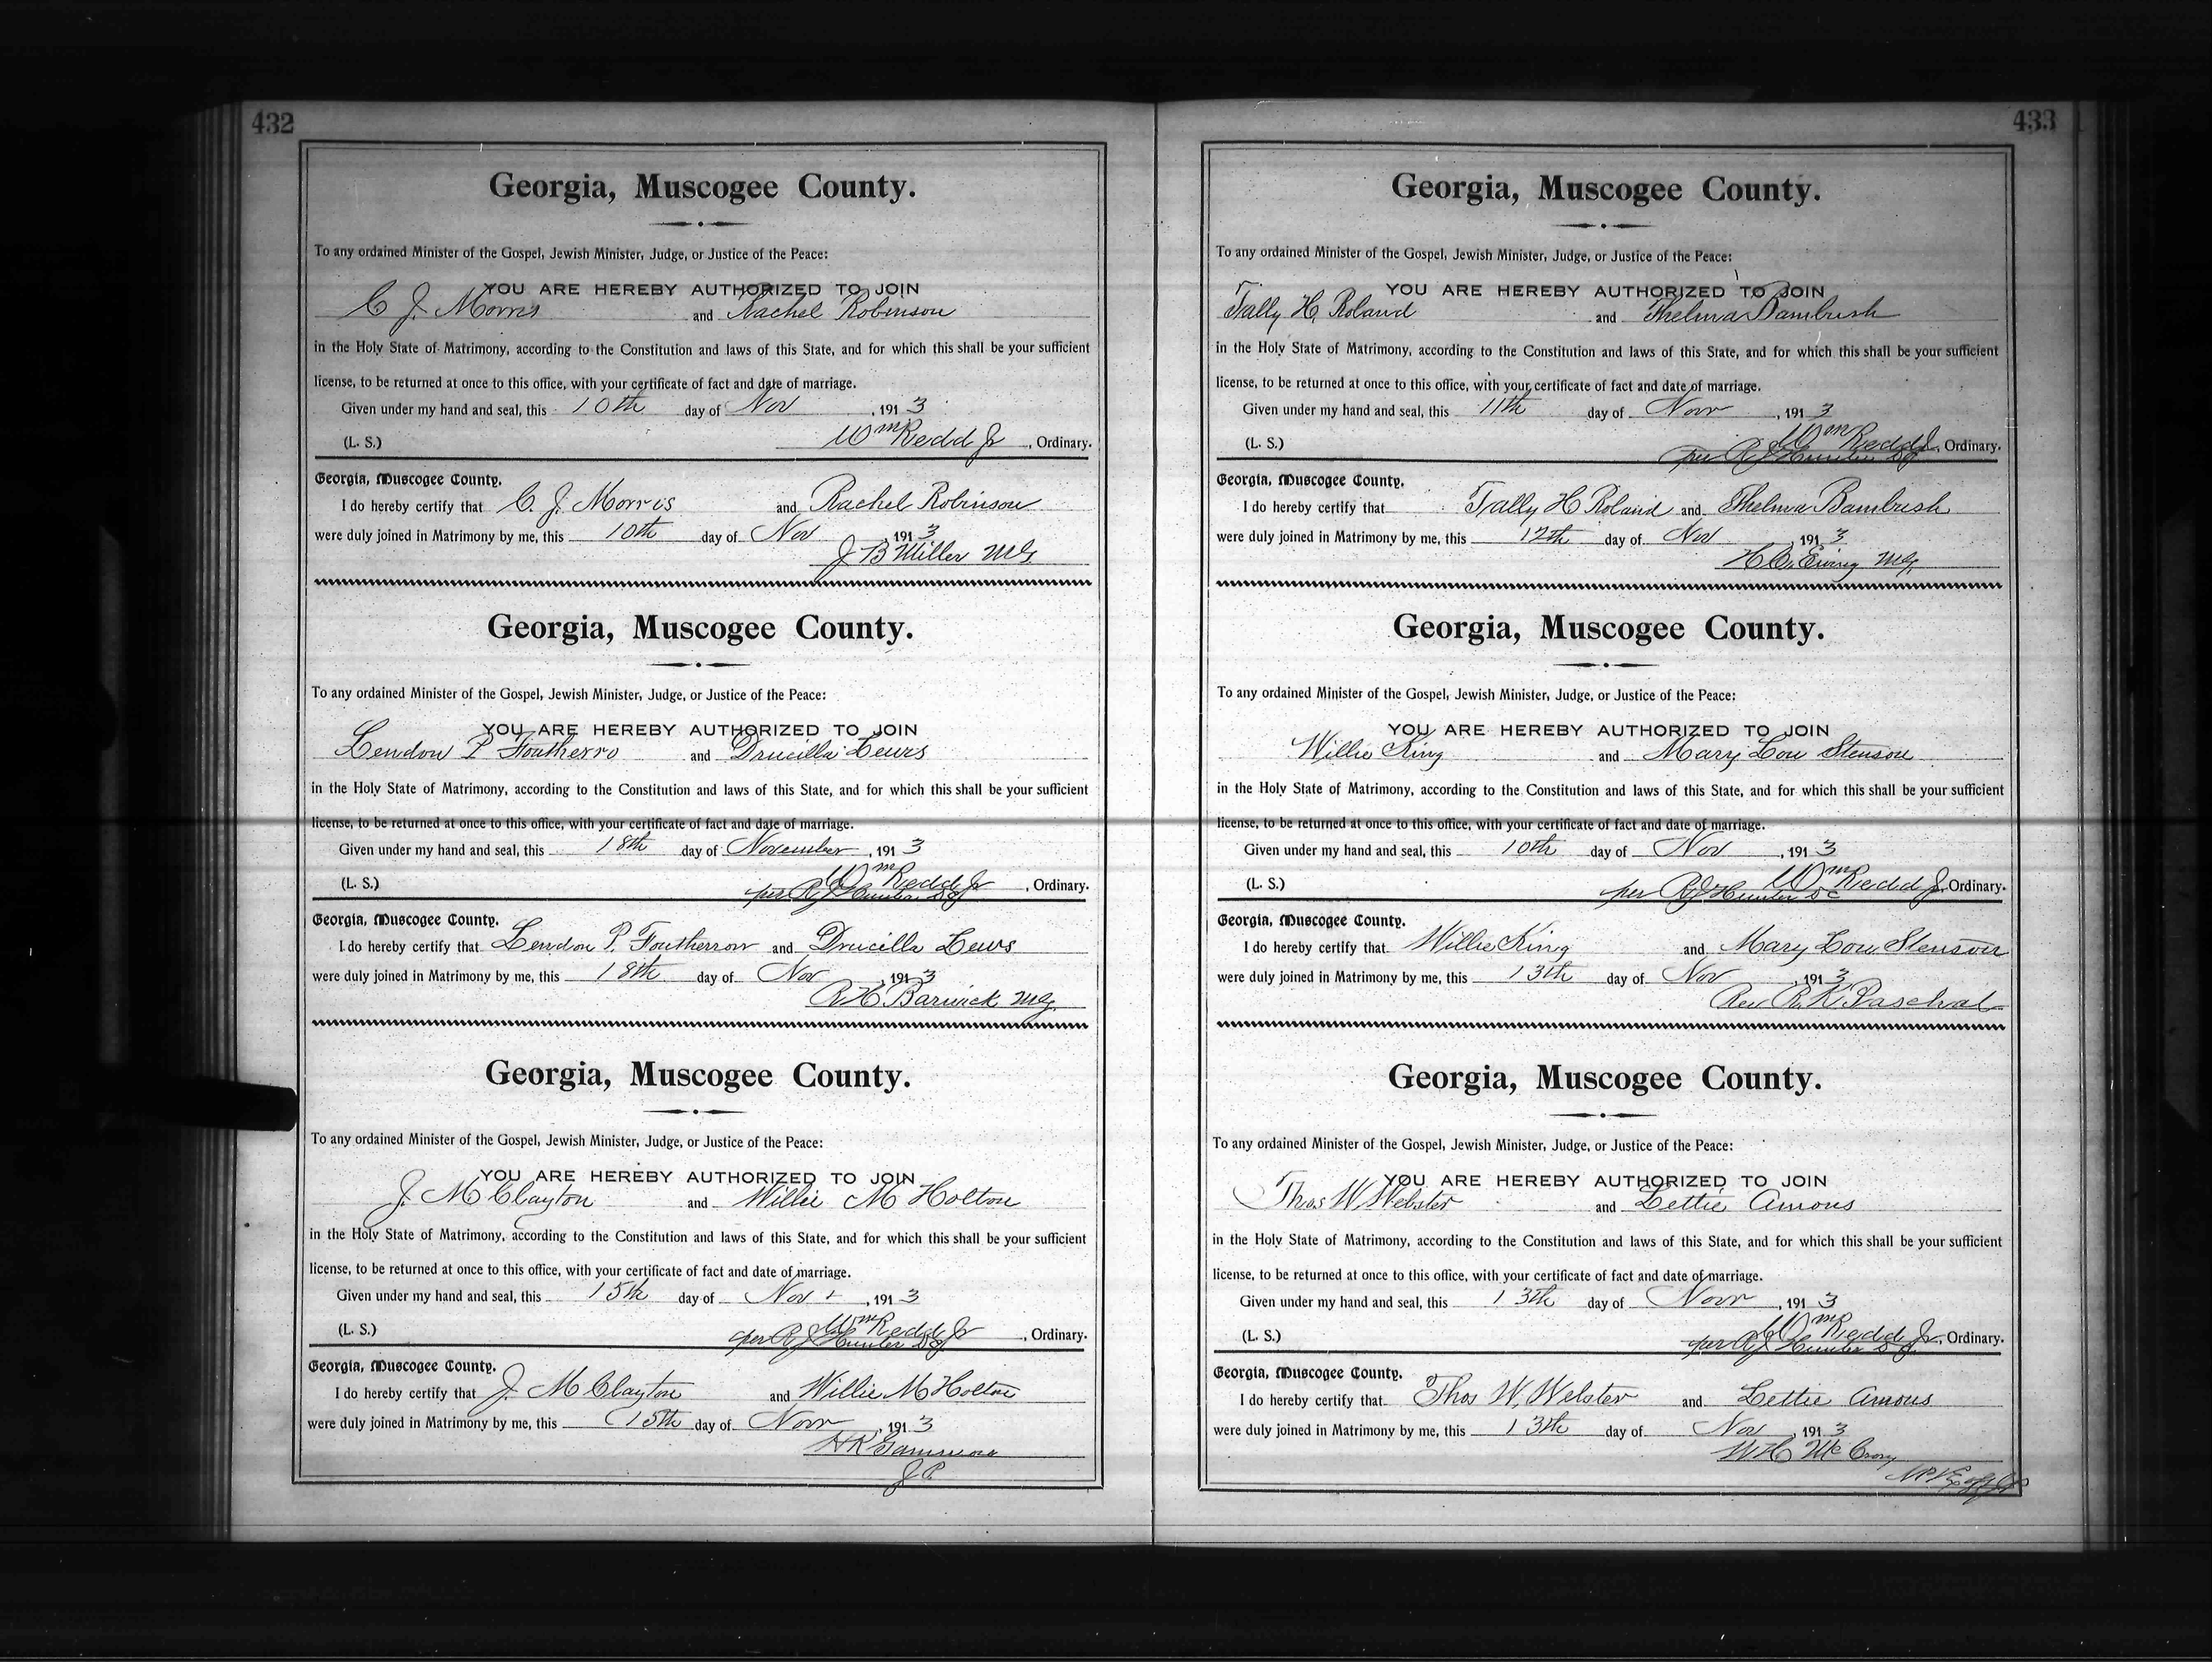 432
Georgia, Muscogee County.
To any ordained Minister of the Gospel, Jewish Minister, Judge, or Justice of the Peace:
YOU ARE HEREBY AUTHORIZED TO JOIN
C J. Morris and Rachel Robinson
in the Holy State of Matrimony, according to the Constitution and laws of this State, and for which this shall be your sufficient
license, to be returned at once to this office, with your certificate of fact and date of marriage.
Given under my hand and seal, this 10th day of Nov , 1913
(L. S.) Wm Redd Jr , Ordinary.
Georgia, Muscogee County.
I do hereby certify that C. J. Morris and Rachel Robinson
were duly joined in Matrimony by me, this 10th day of Nov , 1913
J B Miller M.G.
Georgia, Muscogee County.
To any ordained Minister of the Gospel, Jewish Minister, Judge, or Justice of the Peace:
YOU ARE HEREBY AUTHORIZED TO JOIN
Lendon P Foutherro and Drucilla Lewis
in the Holy State of Matrimony, according to the Constitution and laws of this State, and for which this shall be your sufficient
license, to be returned at once to this office, with your certificate of fact and date of marriage.
Given under my hand and seal, this 18th day of November , 1913
(L. S.) Wm Redd Jr , Ordinary.
per R J Hunter
Georgia, Muscogee County.
I do hereby certify that Lendon P. Foutherron and Drucilla Lews
were duly joined in Matrimony by me, this 18th day of Nov , 1913
R H Barwick M.G.
Georgia, Muscogee County.
To any ordained Minister of the Gospel, Jewish Minister, Judge, or Justice of the Peace:
YOU ARE HEREBY AUTHORIZED TO JOIN
J. M Clayton and Willie M Holton
in the Holy State of Matrimony, according to the Constitution and laws of this State, and for which this shall be your sufficient
license, to be returned at once to this office, with your certificate of fact and date of marriage.
Given under my hand and seal, this 15th day of Nov , 1913
(L. S.) Wm Redd Jr , Ordinary.
per R J Hunter
Georgia, Muscogee County.
I do hereby certify that J. M Clayton and Willie M Holton
were duly joined in Matrimony by me, this 15th day of Novr , 1913
J P.
433
Georgia, Muscogee County.
To any ordained Minister of the Gospel, Jewish Minister, Judge, or Justice of the Peace:
YOU ARE HEREBY AUTHORIZED TO JOIN
Tally H. Roland and Thelma Bambush
in the Holy State of Matrimony, according to the Constitution and laws of this State, and for which this shall be your sufficient
license, to be returned at once to this office, with your certificate of fact and date of marriage.
Given under my hand and seal, this 11th day of Novr , 1913
(L. S.) Wm Redd Jr, Ordinary.
per R J Hunter
Georgia, Muscogee County.
I do hereby certify that Tally H Roland and Thelma Bambush
were duly joined in Matrimony by me, this 12th day of Nov , 1913
H C. Ewing M.G.
Georgia, Muscogee County.
To any ordained Minister of the Gospel, Jewish Minister, Judge, or Justice of the Peace:
YOU ARE HEREBY AUTHORIZED TO JOIN
Willie King and Mary Lou Stenson
in the Holy State of Matrimony, according to the Constitution and laws of this State, and for which this shall be your sufficient
license, to be returned at once to this office, with your certificate of fact and date of marriage.
Given under my hand and seal, this 10th day of Nov , 1913
(L. S.) Wm Redd Jr, Ordinary.
per R J Hunter DC
Georgia, Muscogee County.
I do hereby certify that Willie King and Mary Lou Stenson
were duly joined in Matrimony by me, this 13th day of Nov , 1913
Rev R. K. Paschal
Georgia, Muscogee County.
To any ordained Minister of the Gospel, Jewish Minister, Judge, or Justice of the Peace:
YOU ARE HEREBY AUTHORIZED TO JOIN
Thos W. Webster and Lettie Amous
in the Holy State of Matrimony, according to the Constitution and laws of this State, and for which this shall be your sufficient
license, to be returned at once to this office, with your certificate of fact and date of marriage.
Given under my hand and seal, this 13th day of Novr , 1913
(L. S.) Wm Redd Jr, Ordinary.
per R J Hunter
Georgia, Muscogee County.
I do hereby certify that Thos W. Webster and Lettie Amous
were duly joined in Matrimony by me, this 13th day of Nov , 1913
W H McCrory